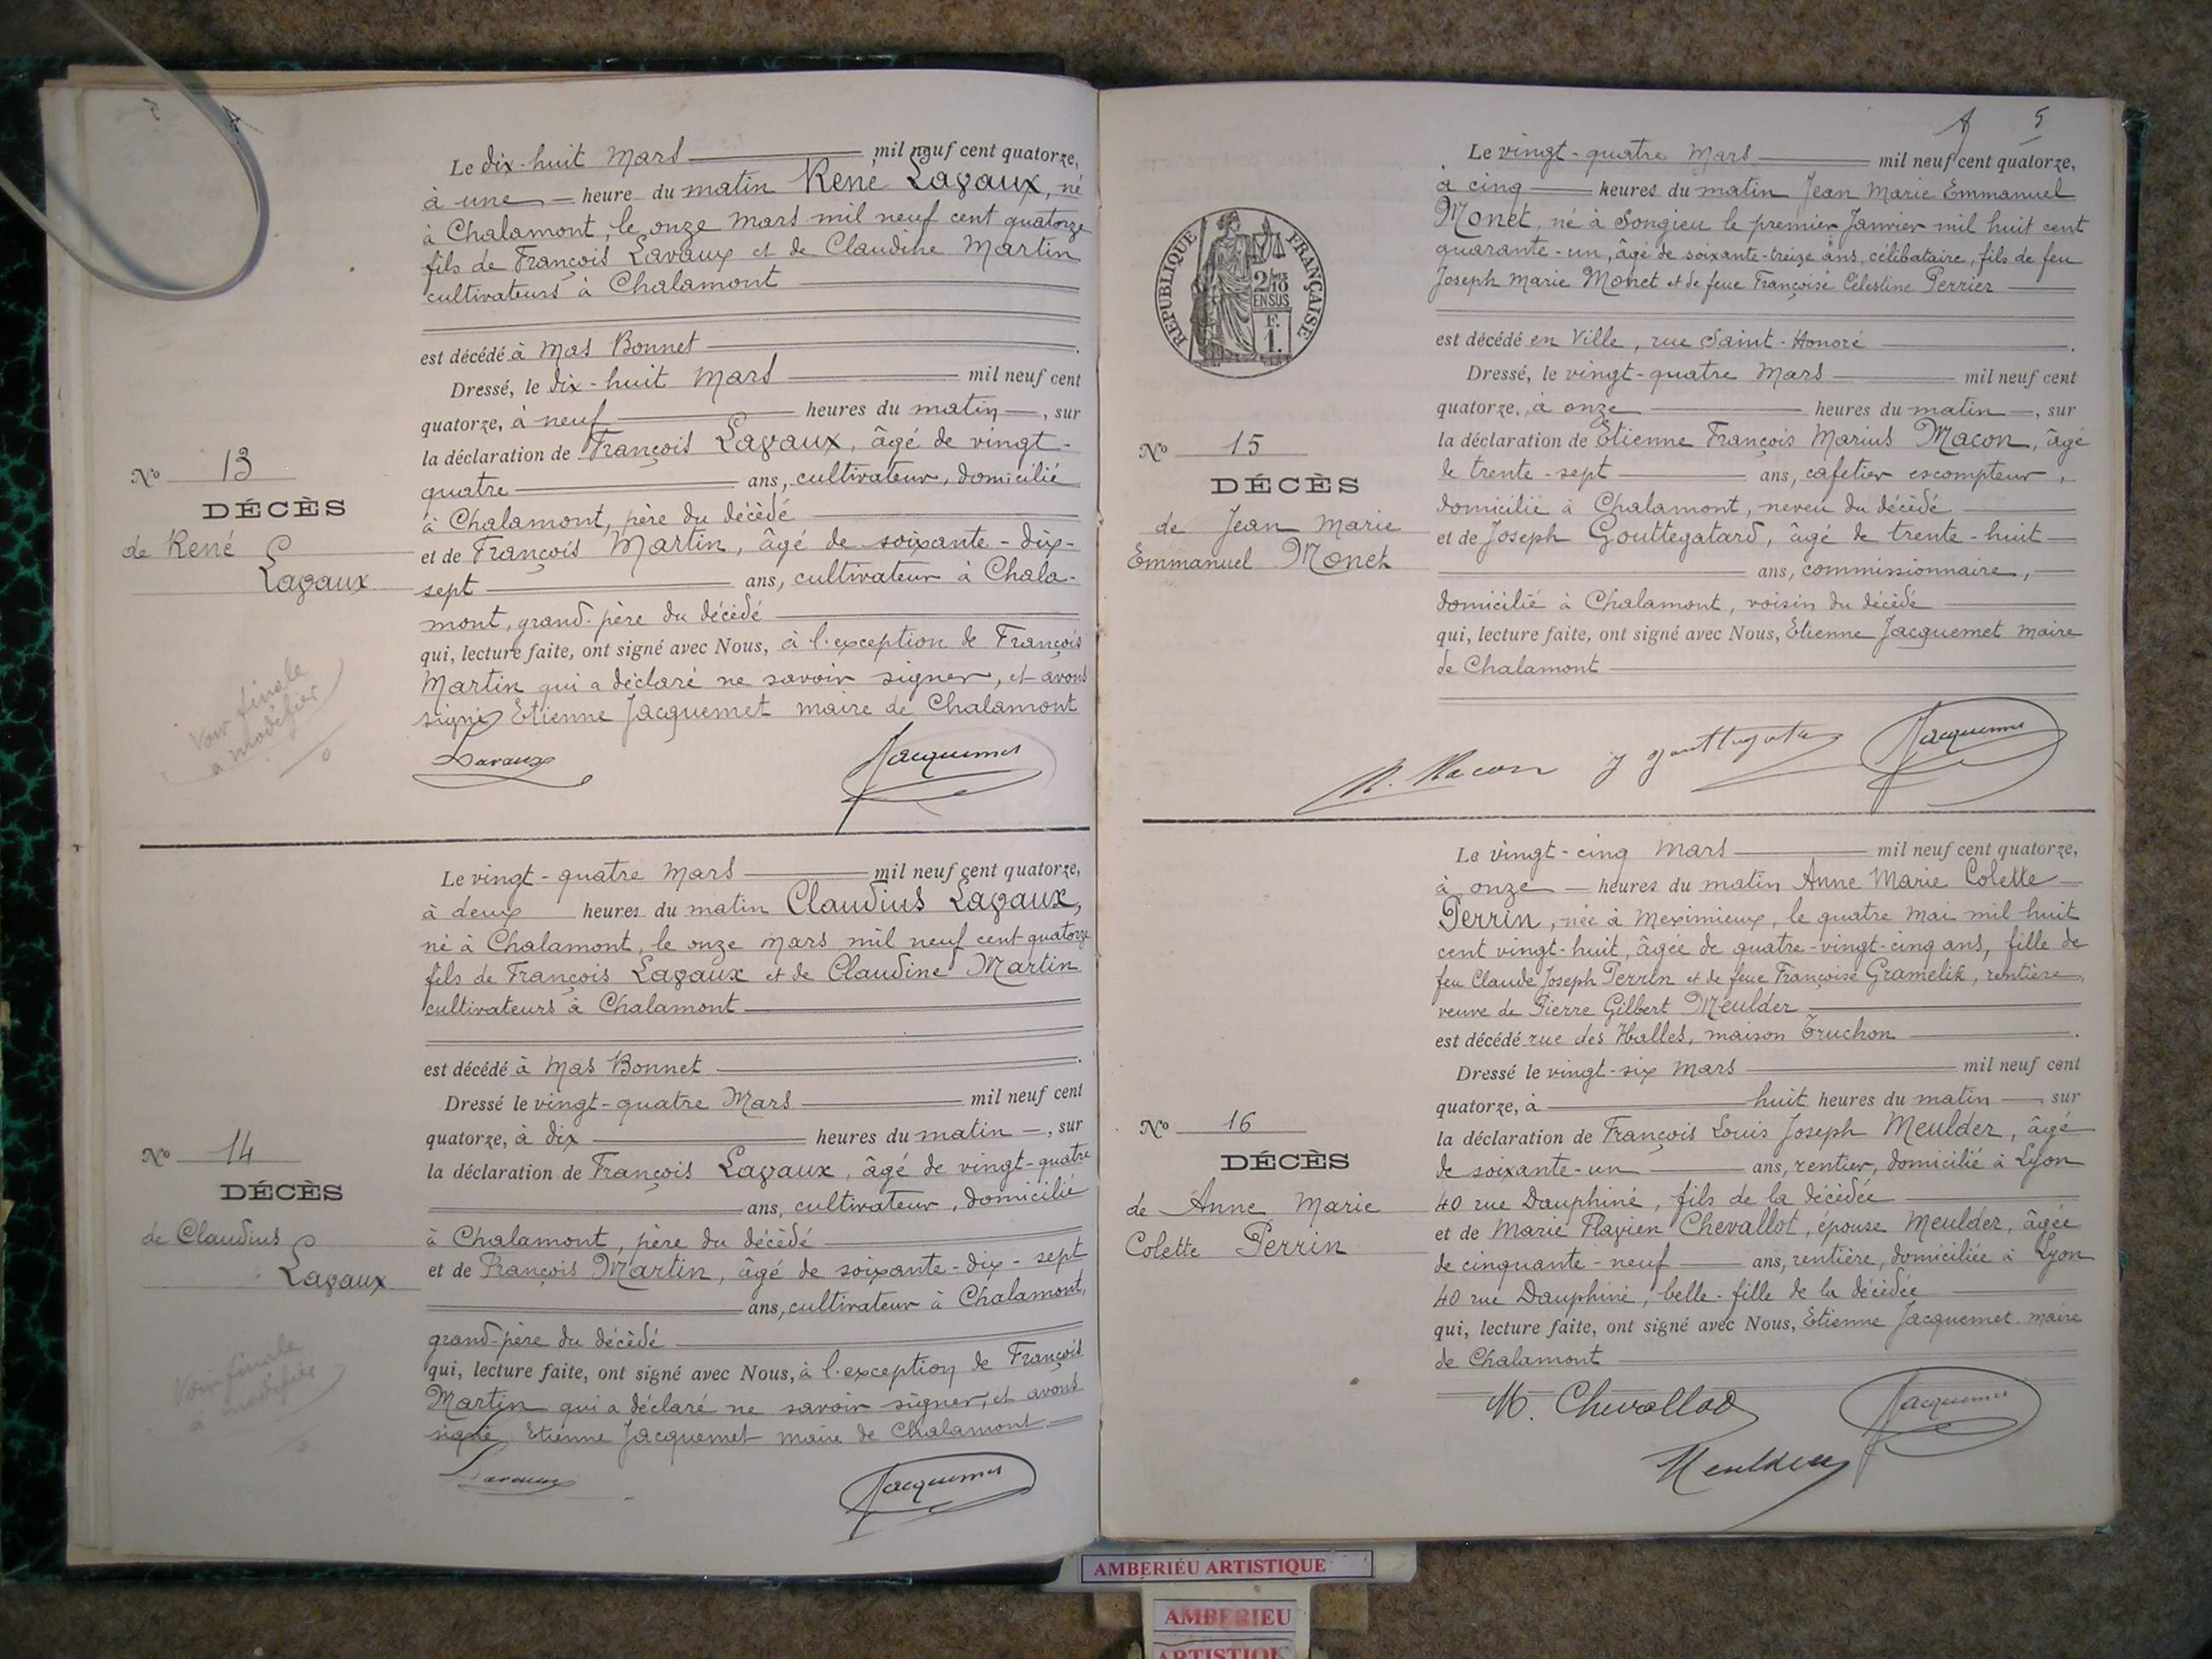 Le dix-huit Mars mil neuf cent quatorze,
à une heure du matin René Lavaux, né
à Chalamont, le onze Mars mil neuf cent quatorze
fils de François Lavaux et de Claudine Martin
cultivateurs à Chalamont
est décédé à Mas Bonnet
Dressé, le dix-huit Mars mil neuf cent
quatorze, à neuf heures du matin, sur
la déclaration de François Lavaux, âgé de vingt-
quatre ans, cultivateur, domicilié
à Chalamont, père du décédé
et de François Martin, âgé de soixante-dix-
sept ans, cultivateur à Chala-
mont, grand-père du décédé
qui, lecture faite, ont signé avec Nous, à l'exception de François
Martin qui a déclaré ne savoir signer, et avons
signé Etienne Jacquemet maire de Chalamont
Lavaux Jacquemet
No 13
DÉCÈS
de René
Lavaux
Voir finale
à modifier
Le vingt-quatre Mars mil neuf cent quatorze,
à deux heures du matin Claudius Lavaux,
né à Chalamont, le onze Mars mil neuf cent quatorze
fils de François Lavaux et de Claudine Martin
cultivateurs à Chalamont
est décédé à Mas Bonnet
Dressé le vingt-quatre Mars mil neuf cent
quatorze, à dix heures du matin, sur
la déclaration de François Lavaux, âgé de vingt-quatre
ans, cultivateur, domicilié
à Chalamont, père du décédé
et de François Martin, âgé de soixante-dix-sept
ans, cultivateur à Chalamont,
grand-père du décédé
qui, lecture faite, ont signé avec Nous, à l'exception de François
Martin qui a déclaré ne savoir signer, et avons
signé Etienne Jacquemet maire de Chalamont
Lavaux Jacquemet
No 14
DÉCÈS
de Claudius
Lavaux
Voir finale
à modifier
5
Le vingt-quatre Mars mil neuf cent quatorze,
à cinq heures du matin Jean Marie Emmanuel
Monet, né à Songieu le premier Janvier mil huit cent
quarante-un, âgé de soixante-treize ans, célibataire, fils de feu
Joseph Marie Monet et de feue Françoise Célestine Perrier
est décédé en Ville, rue Saint-Honoré
Dressé, le vingt-quatre Mars mil neuf cent
quatorze, à onze heures du matin, sur
la déclaration de Etienne François Marius Macon, âgé
de trente-sept ans, cafetier escompteur,
domicilié à Chalamont, neveu du décédé
et de Joseph Gouttegatard, âgé de trente-huit
ans, commissionnaire,
domicilié à Chalamont, voisin du décédé
qui, lecture faite, ont signé avec Nous, Etienne Jacquemet maire
de Chalamont
M. Macon J Gouttegata Jacquemet
RÉPUBLIQUE FRANÇAISE
2/10
EN SUS
F.
1.
No 15
DÉCÈS
de Jean Marie
Emmanuel Monet
Le vingt-cinq Mars mil neuf cent quatorze,
à onze heures du matin Anne Marie Colette
Perrin, née à Meximieux, le quatre Mai mil huit
cent vingt-huit, âgée de quatre-vingt-cinq ans, fille de
feu Claude Joseph Perrin et de feue Françoise Gramelik, rentière,
veuve de Pierre Gilbert Meulder
est décédé rue des Halles, maison Truchon
Dressé le vingt-six Mars mil neuf cent
quatorze, à huit heures du matin, sur
la déclaration de François Louis Joseph Meulder, âgé
de soixante-un ans, rentier, domicilié à Lyon
40 rue Dauphiné, fils de la décédée
et de Marie Flavien Chevallot, épouse Meulder, âgée
de cinquante-neuf ans, rentière, domiciliée à Lyon
40 rue Dauphiné, belle-fille de la décédée
qui, lecture faite, ont signé avec Nous, Etienne Jacquemet maire
de Chalamont
M. Chevallot Jacquemet
Meulder
No 16
DÉCÈS
de Anne Marie
Colette Perrin
AMBERIEU ARTISTIQUE
AMBERIEU
ARTISTIQUE